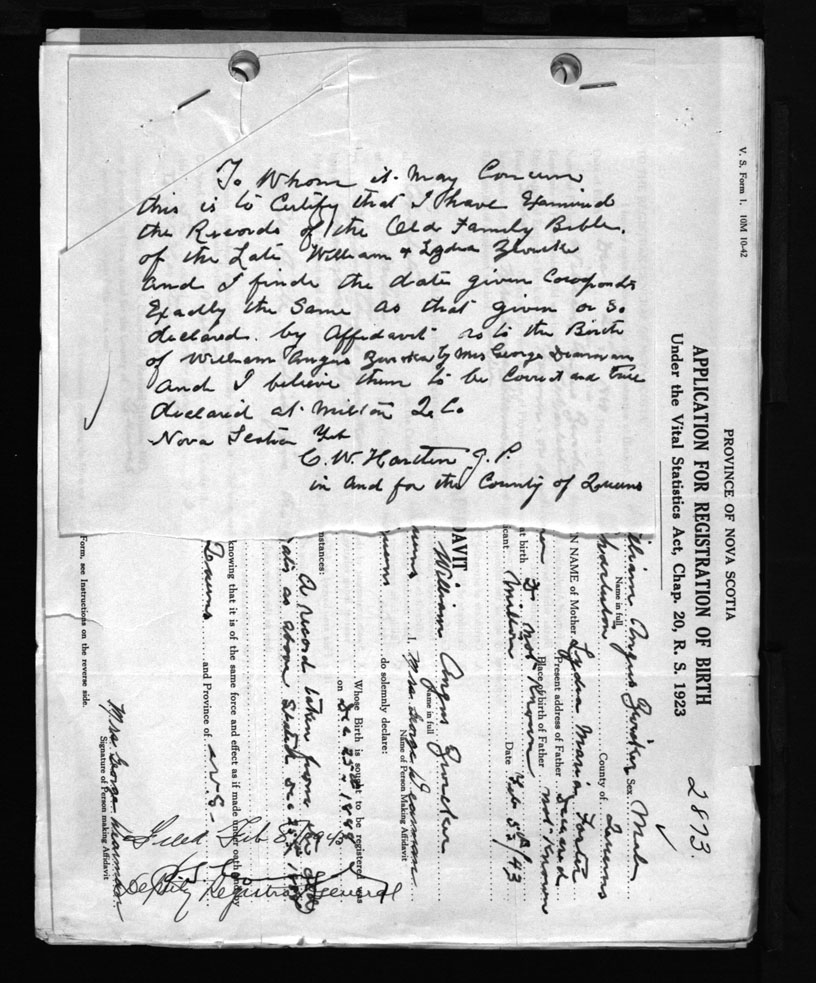 To Whom it May Concern
this is to Certify that I have Examined
the Records of the Old Family Bible.
of the Late William & Lydia
and I finde the date given Coresponds
Exactly the Same as that given or So
declared. by Affidavit as to the Birth
of William Angus by Mrs George
and I believe them to be Correct and True
declared at Milton Q. Co
Nova Scotia Feb
C. W. J. P.
in and for the County of Queens
V. S. Form 1. 10M 10-42
PROVINCE OF NOVA SCOTIA
APPLICATION FOR REGISTRATION OF BIRTH
Under the Vital Statistics Act, Chap. 20, R. S. 1923
2893.
illiam Angus Sex Male
Name in full
County of Queens
N NAME of Mother Lydia Maria Foster
Present address of Father Deceased
Place of birth of Father not Known
at birth Not Known
icant Milton Date Feb 5th/43
DAVIT
William Angus
Name in full
I, Mrs. George
Name of Person Making Affidavit
do solemnly declare:
Whose Birth is sought to be registered was
on Dec 25th
nstances:
A record taken from the
as above Stated Dec
knowing that it is of the same force and effect as if made under oath
Queens and Province of N.S.
Mrs. George
Signature of Person making Affidavit
Form, see Instructions on the reverse side.
Filed Feb 8/1943
Deputy Registrar General